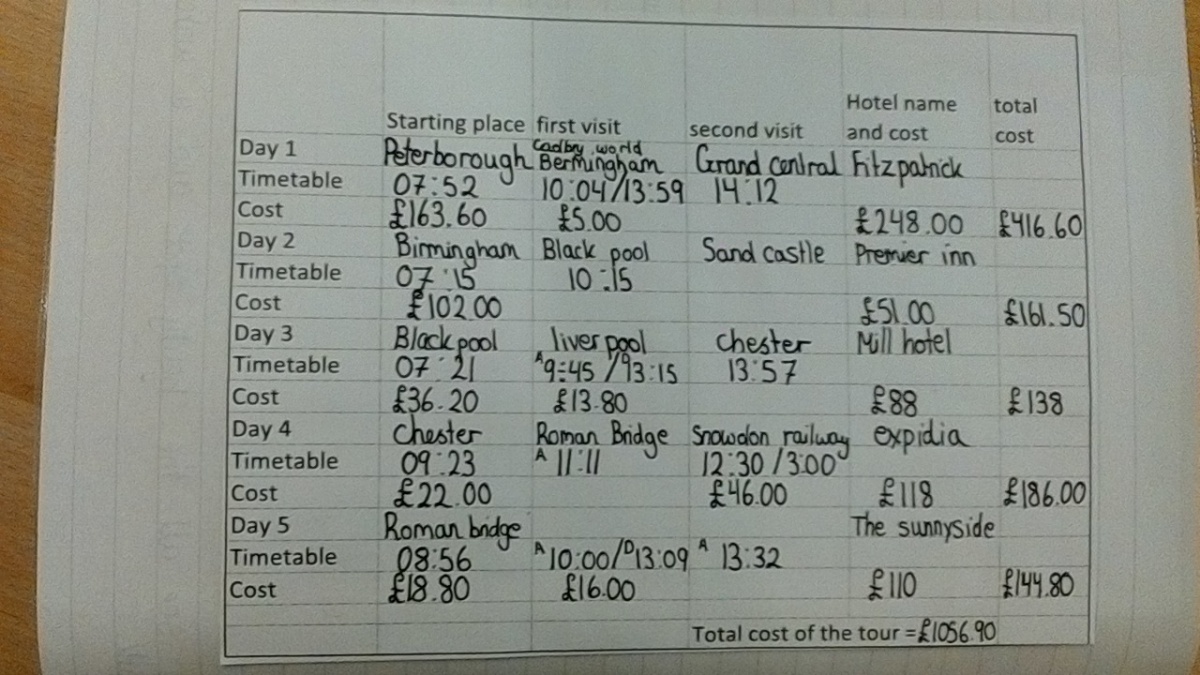 Hotel name total
Starting place first visit second visit and cost cost
Day 1 Peterborough Cadbry world Bermingham Grand central Fitzpatrick
Timetable 07:52 10:04/13:59 14:12
Cost £163.60 £5.00 £248.00 £416.60
Day 2 Birmingham Black pool Sand castle Premier inn
Timetable 07:15 10:15
Cost £102.00 £51.00 £161.50
Day 3 Blackpool liver pool chester Mill hotel
Timetable 07:21 A 9:45 / 13:15 13:57
Cost £36.20 £13.80 £88 £138
Day 4 chester Roman Bridge Snowdon railway expidia
Timetable 09:23 A 11:11 12:30 / 3:00
Cost £22.00 £46.00 £118 £186.00
Day 5 Roman bridge The sunnyside
Timetable 08:56 A 10:00/D 13:09 A 13:32
Cost £18.80 £16.00 £110 £144.80
Total cost of the tour = £1056.90